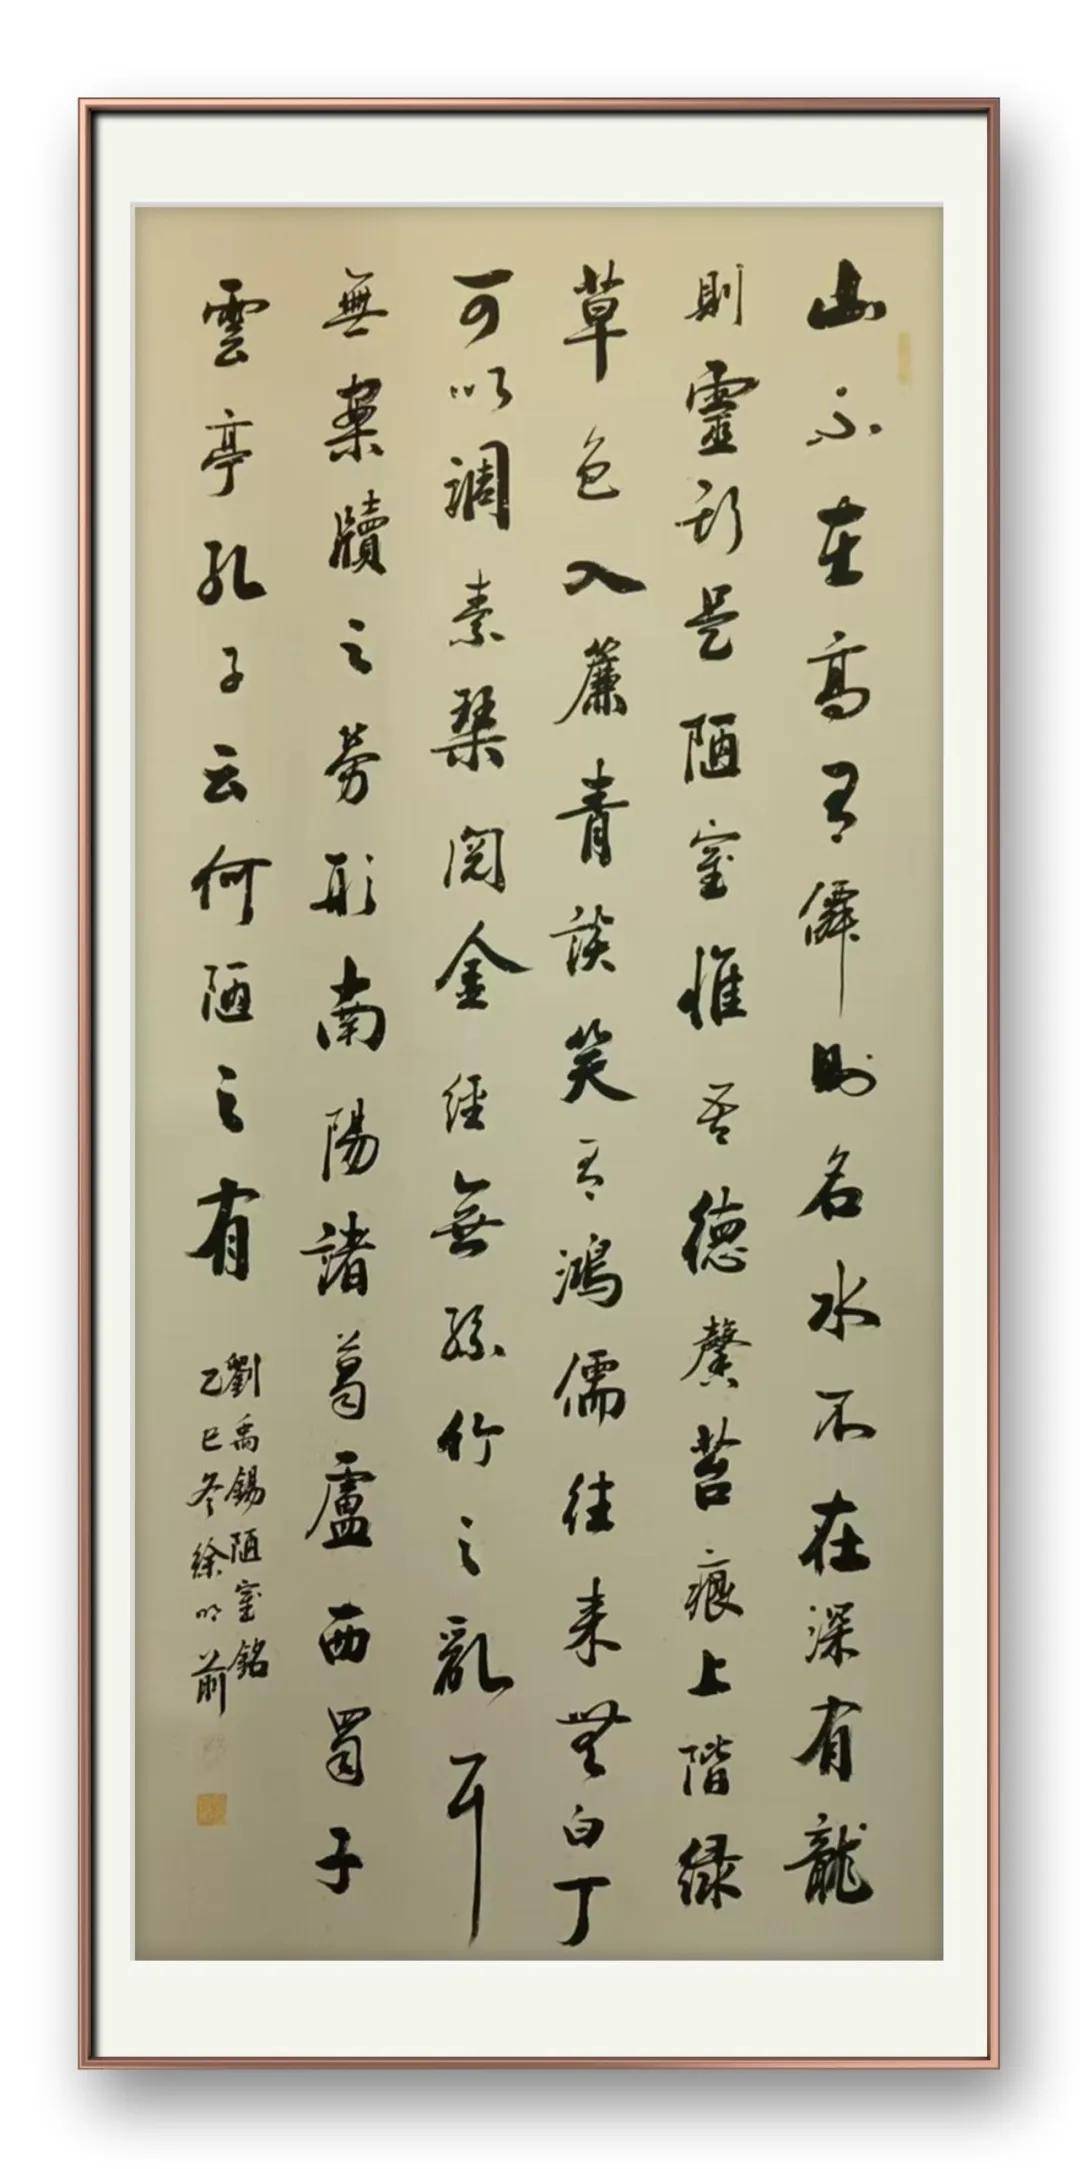 山不在高有僊則名水不在深有龍
則靈斯是陋室惟吾德馨苔痕上階緑
草色入簾青談笑有鴻儒往来無白丁
可以調素琴閲金經無絲竹之亂耳
無案牘之勞形南陽諸葛盧西蜀子
雲亭孔子云何陋之有
劉禹錫陋室銘
乙巳冬徐明前